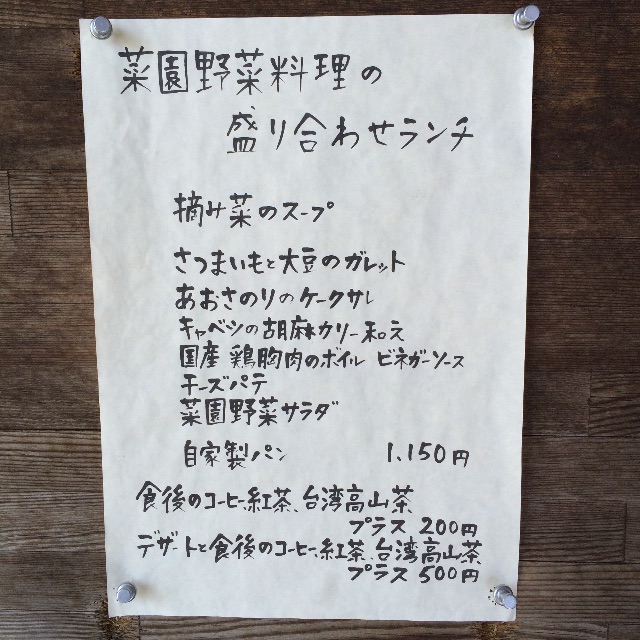 菜園野菜料理の
盛り合わせランチ
摘み菜のスープ
さつまいもと大豆のガレット
あおさのりのケークサレ
キャベツの胡麻カリー和え
国産鶏胸肉のボイル ビネガーソース
チーズパテ
菜園野菜サラダ
自家製パン 1,150円
食後のコーヒー、紅茶、台湾高山茶
プラス 200円
デザートと食後のコーヒー、紅茶、台湾高山茶
プラス 500円